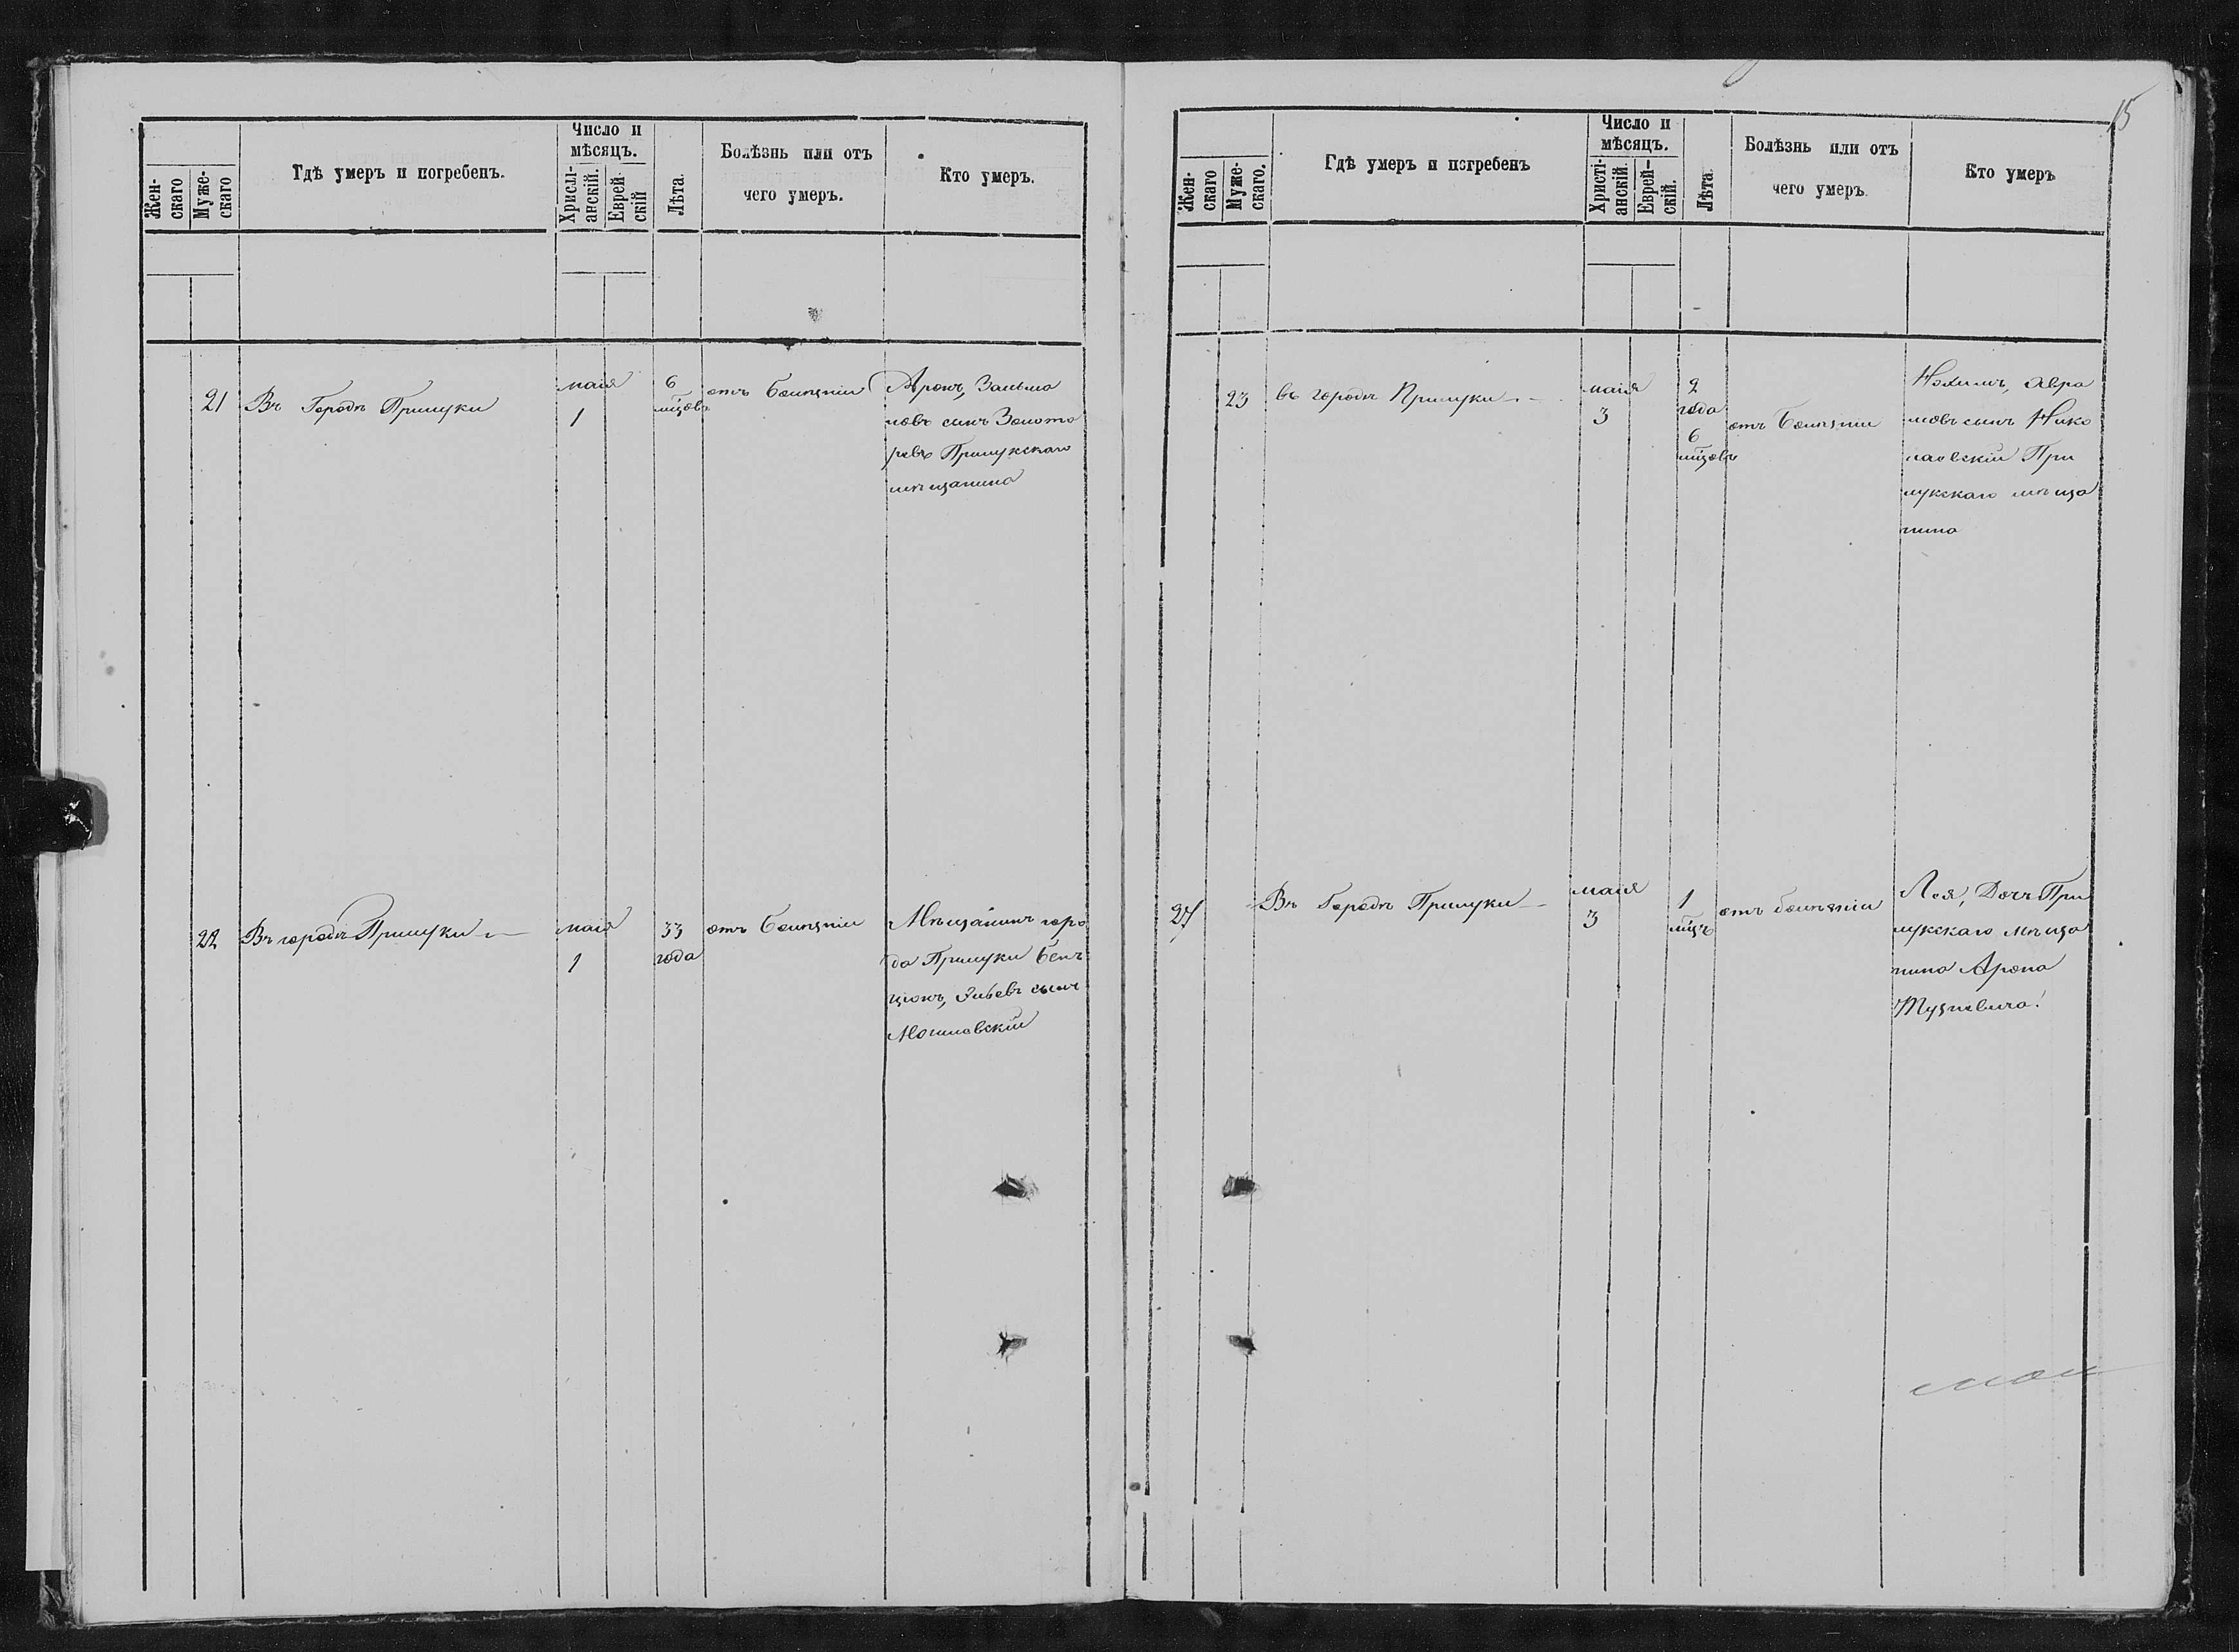 Жен-
скаго
Муже-
скаго
Гдѣ умеръ и погребенъ.
Число и
мѣсяцъ.
Христі-
анскій.
Еврей-
скій
Лѣта.
Болѣзнь или отъ
чего умеръ.
Кто умеръ.
21
Въ Городѣ Прилуки
маія
1
6
мцовъ
отъ болѣзни
Аронъ, Зальма
новъ сынъ Золото
ревъ Прилукскаго
мѣщанина
22
Въ городѣ Прилуки
маія
1
33
года
отъ болѣзни
Мѣщанинъ горо
да Прилуки Бенъ
ціонъ, сынъ
Могилевскій
15
Жен-
скаго
Муже-
скаго.
Гдѣ умеръ и погребенъ
Число и
мѣсяцъ.
Христі-
анскій.
Еврей-
скій.
Лѣта.
Болѣзнь или отъ
чего умеръ.
Кто умеръ
23
въ городѣ Прилуки
маія
3
2
года
6
мцовъ
отъ болѣзни
Нохимъ, Авра
мовъ сынъ Нико
лаевскій При
лукскаго мѣща
нина
24
Въ Городѣ Прилуки
маія
3
1
мцъ
отъ болѣзни
Лея, Дочь При
лукскаго мѣща
нина Арона